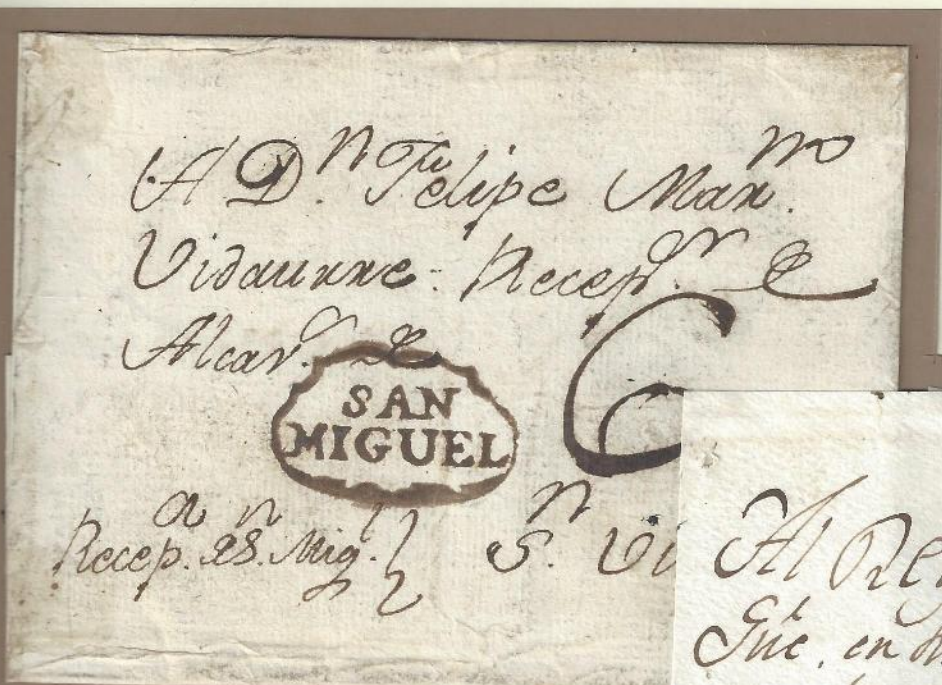 A Dn. Felipe Marno.
Vidaurre. Recepr. de
Alcavs. de
SAN
MIGUEL
6
Recepa. de Sn. Migl.
Sn. Vi
Al Re
Gue. en